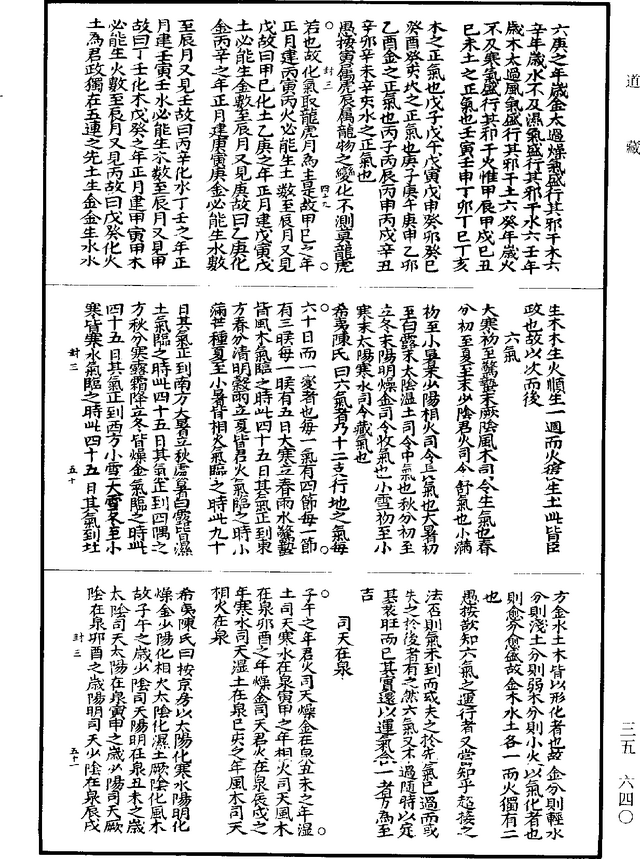 道藏
六庚之年歲金太過燥氣盛行其邪干木六
辛年歲水不及濕氣盛行其邪干水六壬年
歲木太過風氣盛行其邪干土六癸年歲火
不及寒氣盛行其邪干火惟甲辰甲戌己丑
己未土之正氣也壬寅壬申丁卯丁巳丁亥
木之正氣也戊子戊午戊寅戊申癸卯癸巳
癸酉癸亥火之正氣也庚子庚午庚申乙卯
乙酉金之正氣也丙子丙辰丙申丙戌辛丑
辛卯辛未辛亥水之正氣也
愚按寅屬虎辰屬龍物之變化不測莫龍虎
封三
四十九
若也故化氣取龍虎月為主是故甲己之年
正月建丙寅丙火必能生土數至辰月又見
戊故曰甲己化土乙庚之年正月建戊寅戊
土必能生金數至辰月又見庚故曰乙庚化
金丙辛之年正月建庚寅庚金必能生水數
至辰月又見壬故曰丙辛化水丁壬之年正
月建壬寅壬水必能生木數至辰月又見甲
故曰丁壬化木戊癸之年正月建甲寅甲木
必能生火數至辰月又見丙故曰戊癸化火
土為君政獨在五運之先土生金金生水水
生木木生火順生一週而火復生土此皆臣
政也故以次而後
六氣
大寒初至驚蟄末厥陰風木司令生氣也春
分初至夏至末少陰君火司令舒氣也小滿
初至小暑末少陽相火司令長氣也大暑初
至白露末太陰温土司令中氣也秋分初至
立冬末陽明燥金司令收氣也小雪初至小
寒末太陽寒水司令藏氣也
希夷陳氏曰六氣者乃十二支行地之氣每
六十日而一變者也每一氣有四節每一節
有三睺每一睺有五日大寒立春雨水驚蟄
皆風木氣臨之時此四十五日其氣正到東
方春分清明穀雨立夏皆君火氣臨之時小
滿芒種夏至小暑皆相火氣臨之時此九十
日其氣正到南方大暑立秋處暑白露皆濕
土氣臨之時此四十五日其氣正到四隅之
方秋分寒露霜降立冬皆燥金氣臨之時此
四十五日其氣正到西方小雪大雪冬至小
寒皆寒水氣臨之時此四十五日其氣到北
封三
五十
方金水土木皆以形化者也故金分則輕水
分則淺土分則弱木分則小火以氣化者也
則愈分愈盛故金木水土各一而火獨有二
也
愚按欲知六氣之運行者又當知乎趁接之
法否則氣未到而或失之於先氣已過而或
失之於後者有之然六氣又不過隨時以定
其衰旺而已其實還以運氣合一者方為至
吉
司天在泉
子午之年君火司天燥金在泉丑未之年濕
土司天寒水在泉寅申之年相火司天風木
在泉卯酉之年燥金司天君火在泉辰戌之
年寒水司天濕土在泉巳亥之年風木司天
相火在泉
希夷陳氏曰按京房以太陽化寒水陽明化
燥金少陽化相火太陰化濕土厥陰化風木
故子午之歲少陰司天陽明在泉丑未之歲
太陰司天太陽在泉寅申之歲少陽司天厥
陰在泉卯酉之歲陽明司天少陰在泉辰戌
封三
五十一
三五 六四〇